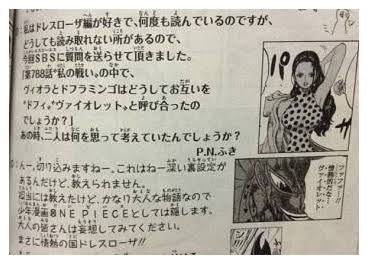 私はドレスローザ編が好きで、何度も読んでいるのですが、
どうしても読み取れない所があるので、
今回SBSに質問を送らせて頂きました。
「第788話"私の戦い"の中で、
ヴィオラとドフラミンゴはどうしてお互いを
"ドフィ""ヴァイオレット"と呼び合ったの
でしょうか?」
あの時、二人は何を思って考えていたんでしょうか?
P.N.ふき
:んー。切り込みますねー。これはね一深い裏設定が
あるんだけど、教えられません。
担当には教えたけど、かなり大人な物語なので
少年漫画のONE PIECEとしては隠します。
大人の皆さんは妄想してみてください。
まさに情熱の国ドレスローザ!!
パッ
ファッファ…!!
情熱的だな…
ヴァイオレット…